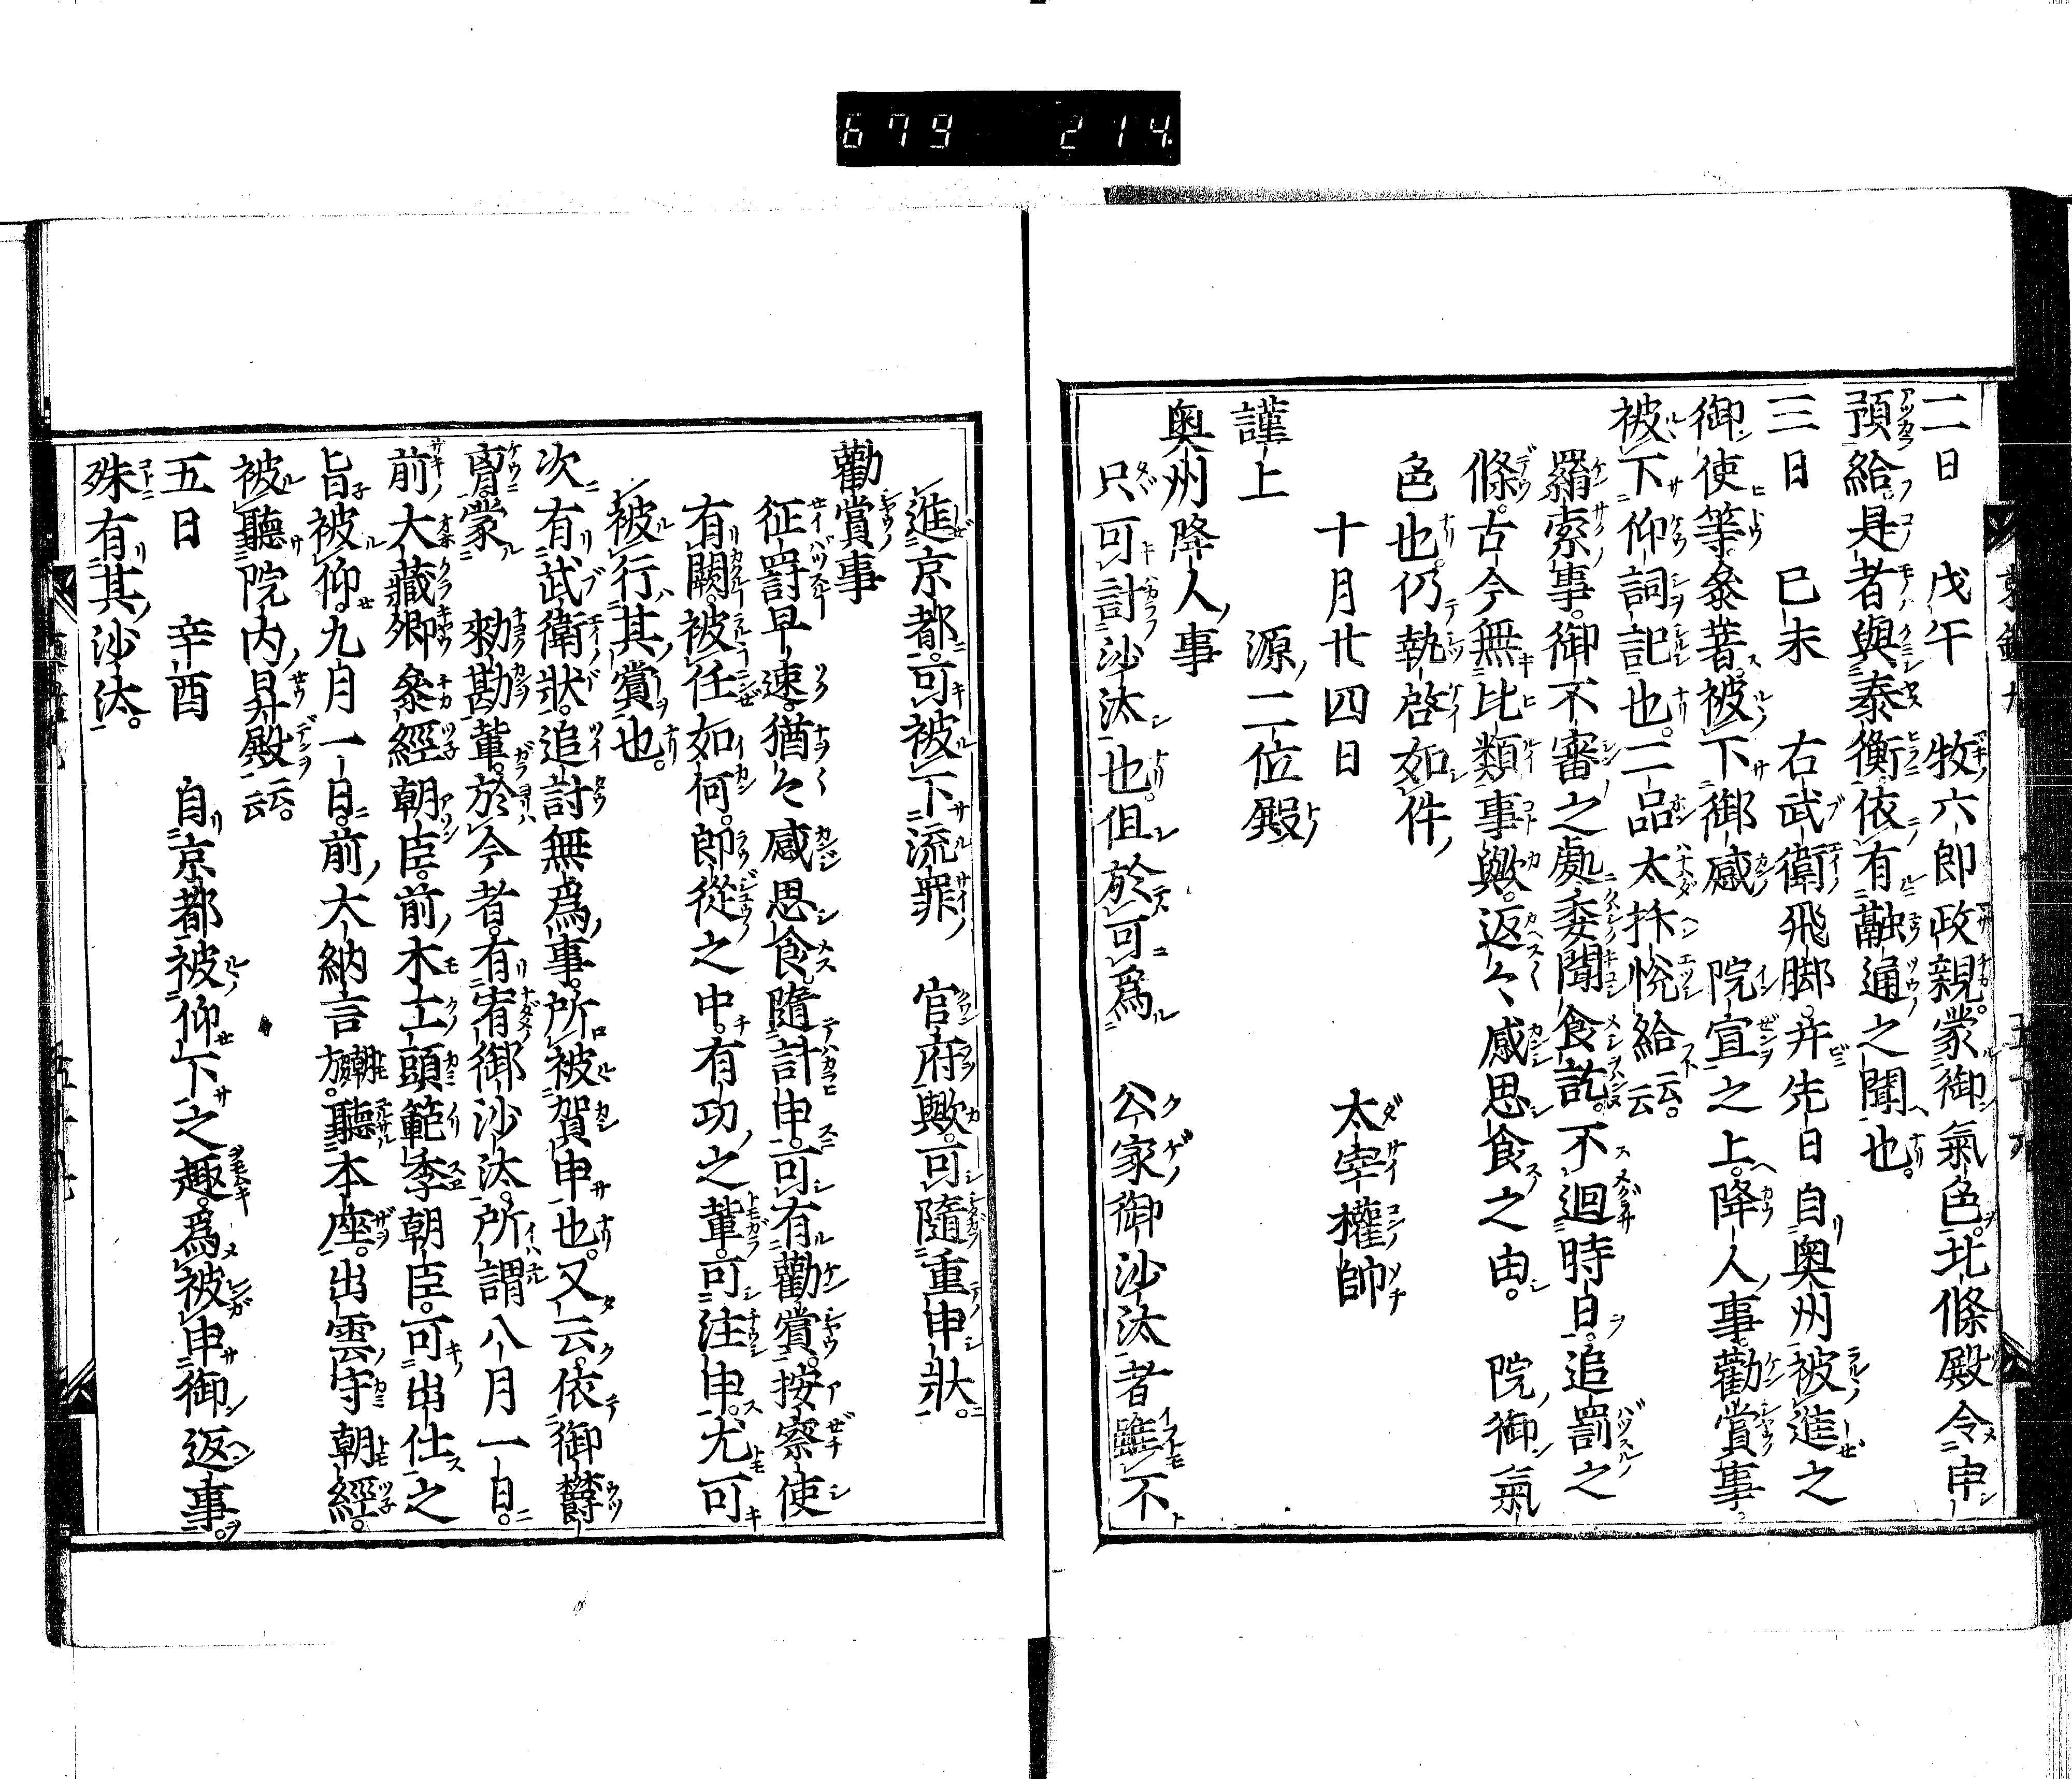 679 214
二日 戊午 牧六郎政親。蒙御氣色。北條殿令申
預給。是者與泰衡依有融通之聞也。
三日 巳未 右武衛飛脚。并先日自奥州被進之
御使等。參著。被下御感 院宣之上。降人事。勸賞事。
被下仰詞記也。二品太抃悦給云云。
羂索事。御不審之處。委聞食訖。不廻時日。追罰之
條。古今無比類事歟。返々感思食之由。 院御氣
色也。仍執啓如件。
十月廿四日 太宰權帥
謹上 源二位殿
奥州降人事
只可計沙汰也。但於可爲 公家御沙汰者。雖不
進京都。可被下流罪 官府歟。可隨重申狀。
勸賞事
征罸早速。猶々感思食。隨計申。可有勸賞。按察使
有闕。被任如何。郎從之中。有功之輩。可注申。尤可
被行其賞也。
次有武衛狀。追討無爲事。所被賀申也。又云。依御欝
胷。蒙 勅勘輩。於今者。有宥御沙汰。所謂八月一日。
前大藏卿泰經朝臣。前木工頭範季朝臣。可出仕之
旨被仰。九月一日。前大納言朝方。聽本座。出雲守朝經。
被聽院内昇殿云云。
五日 辛酉 自京都被仰下之趣。爲被申御返事。
殊有其沙汰。